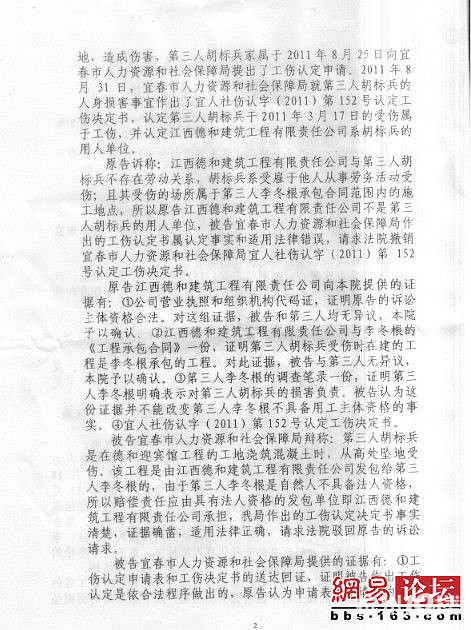 地，造成伤害，第三人胡标兵家属于 2011 年 8 月 25 日向宜
春市人力资源和社会保障局提出了工伤认定申请。2011 年 8
月 31 日，宜春市人力资源和社会保障局就第三人胡标兵的
人身损害事宜作出了宜人社伤认字（2011）第 152 号认定工
伤决定书，认定第三人胡标兵于 2011 年 3 月 17 日的受伤属
于工伤，并认定江西德和建筑工程有限责任公司系胡标兵的
用人单位。
原告诉称：江西德和建筑工程有限责任公司与第三人胡
标兵不存在劳动关系，胡标兵系受雇于他人从事劳务活动受
伤；且其受伤的场所属于第三人李冬根承包合同范围内的施
工地点，所以原告江西德和建筑工程有限责任公司不是第三
人胡标兵的用人单位，被告宜春市人力资源和社会保障局作
出的工伤认定书属认定事实和适用法律错误，请求法院撤销
宜春市人力资源和社会保障局宜人社伤认字（2011）第 152
号认定工伤决定书。
原告江西德和建筑工程有限责任公司向本院提供的证
据有：①公司营业执照和组织机构代码证，证明原告的诉讼
主体资格合法。对这组证据，被告和第三人均无异议，本院
予以确认。②江西德和建筑工程有限责任公司与李冬根的
《工程承包合同》一份，证明第三人胡标兵受伤时在建的工
程是李冬根承包的工程。对此证据，被告与第三人无异议，
本院予以确认。③第三人李冬根的调查笔录一份，证明第三
人李冬根明确表示对第三人胡标兵的损害负责。被告认为这
份证据并不能改变第三人李冬根不具备用工主体资格的事
实。④宜人社伤认字（2011）第 152 号认定工伤决定书。
被告宜春市人力资源和社会保障局辩称：第三人胡标兵
是在德和迎宾馆工程的工地浇筑混凝土时，从高处坠地受
伤。该工程是由江西德和建筑工程有限责任公司发包给第三
人李冬根的，由于第三人李冬根是自然人不具备法人资格，
所以赔偿责任应由具有法人资格的发包单位即江西德和建
筑工程有限责任公司承担，我局作出的工伤认定决定书事实
清楚，证据确凿，适用法律正确，请求法院驳回原告的诉讼
请求。
被告宜春市人力资源和社会保障局提供的证据有：①工
伤认定申请表和工伤决定书的送达回证，证明被告作出工伤
认定是依合法程序做出的，原告认为申请表
2
网易 论坛
bbs.163.com